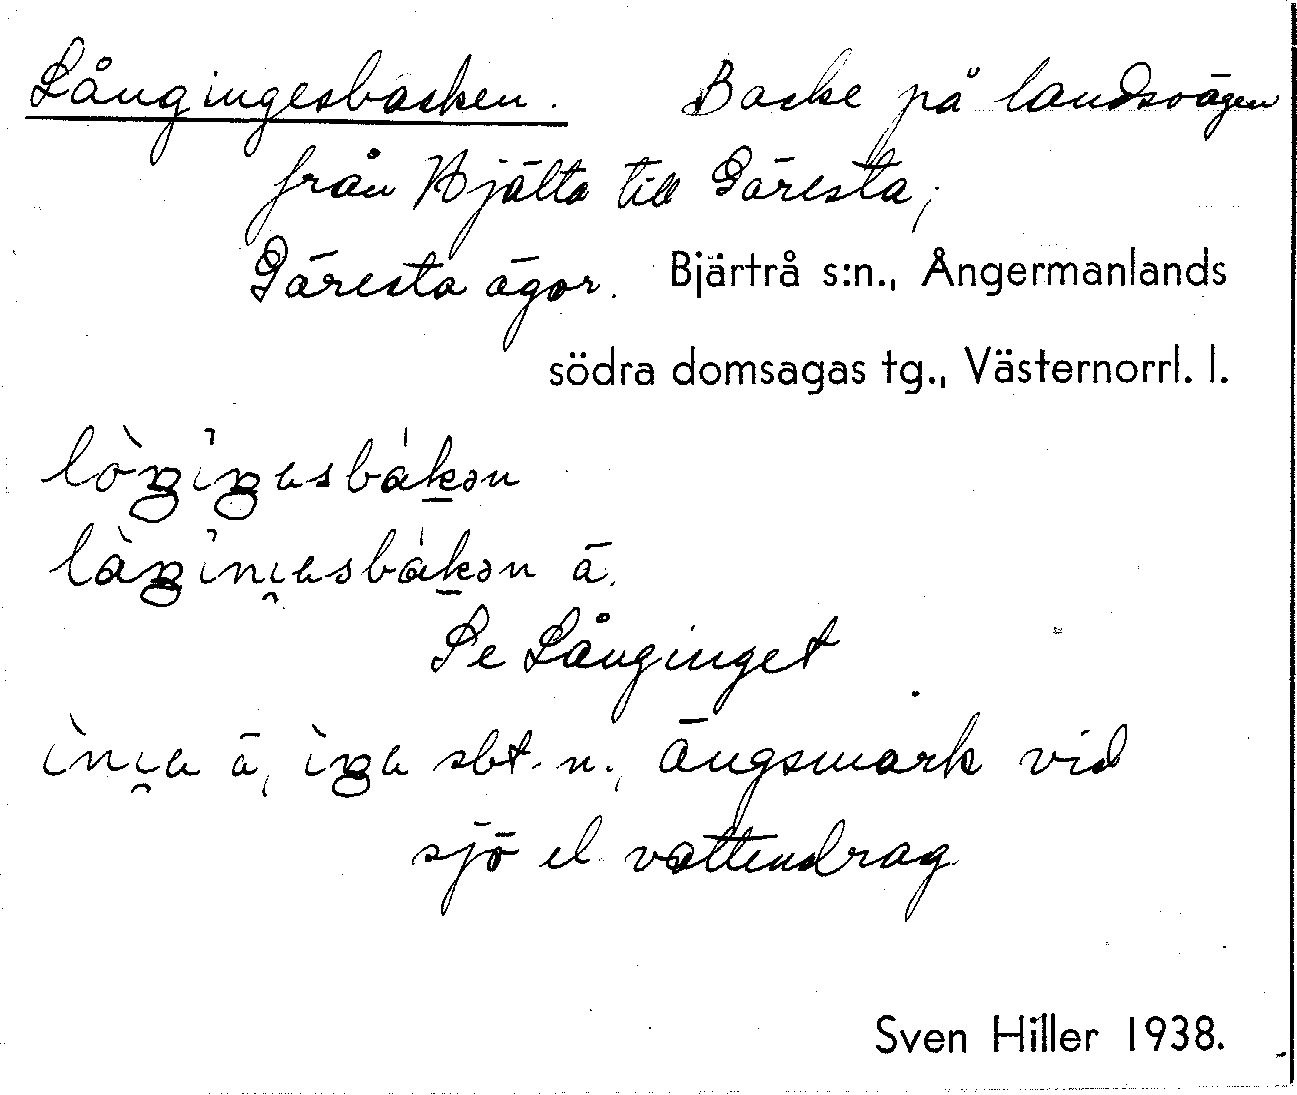 Långingesbacken. Backe på landsvägen
från Hjälta till Gäresta,
Gäresta ägor. Bjärtrå s:n., Ångermanlands
södra domsagas tg., Västernorrl. l.
ä.
Se Långinget
ä, sbt. n., ängsmark vid
sjö el. vattendrag
Sven Hiller 1938.